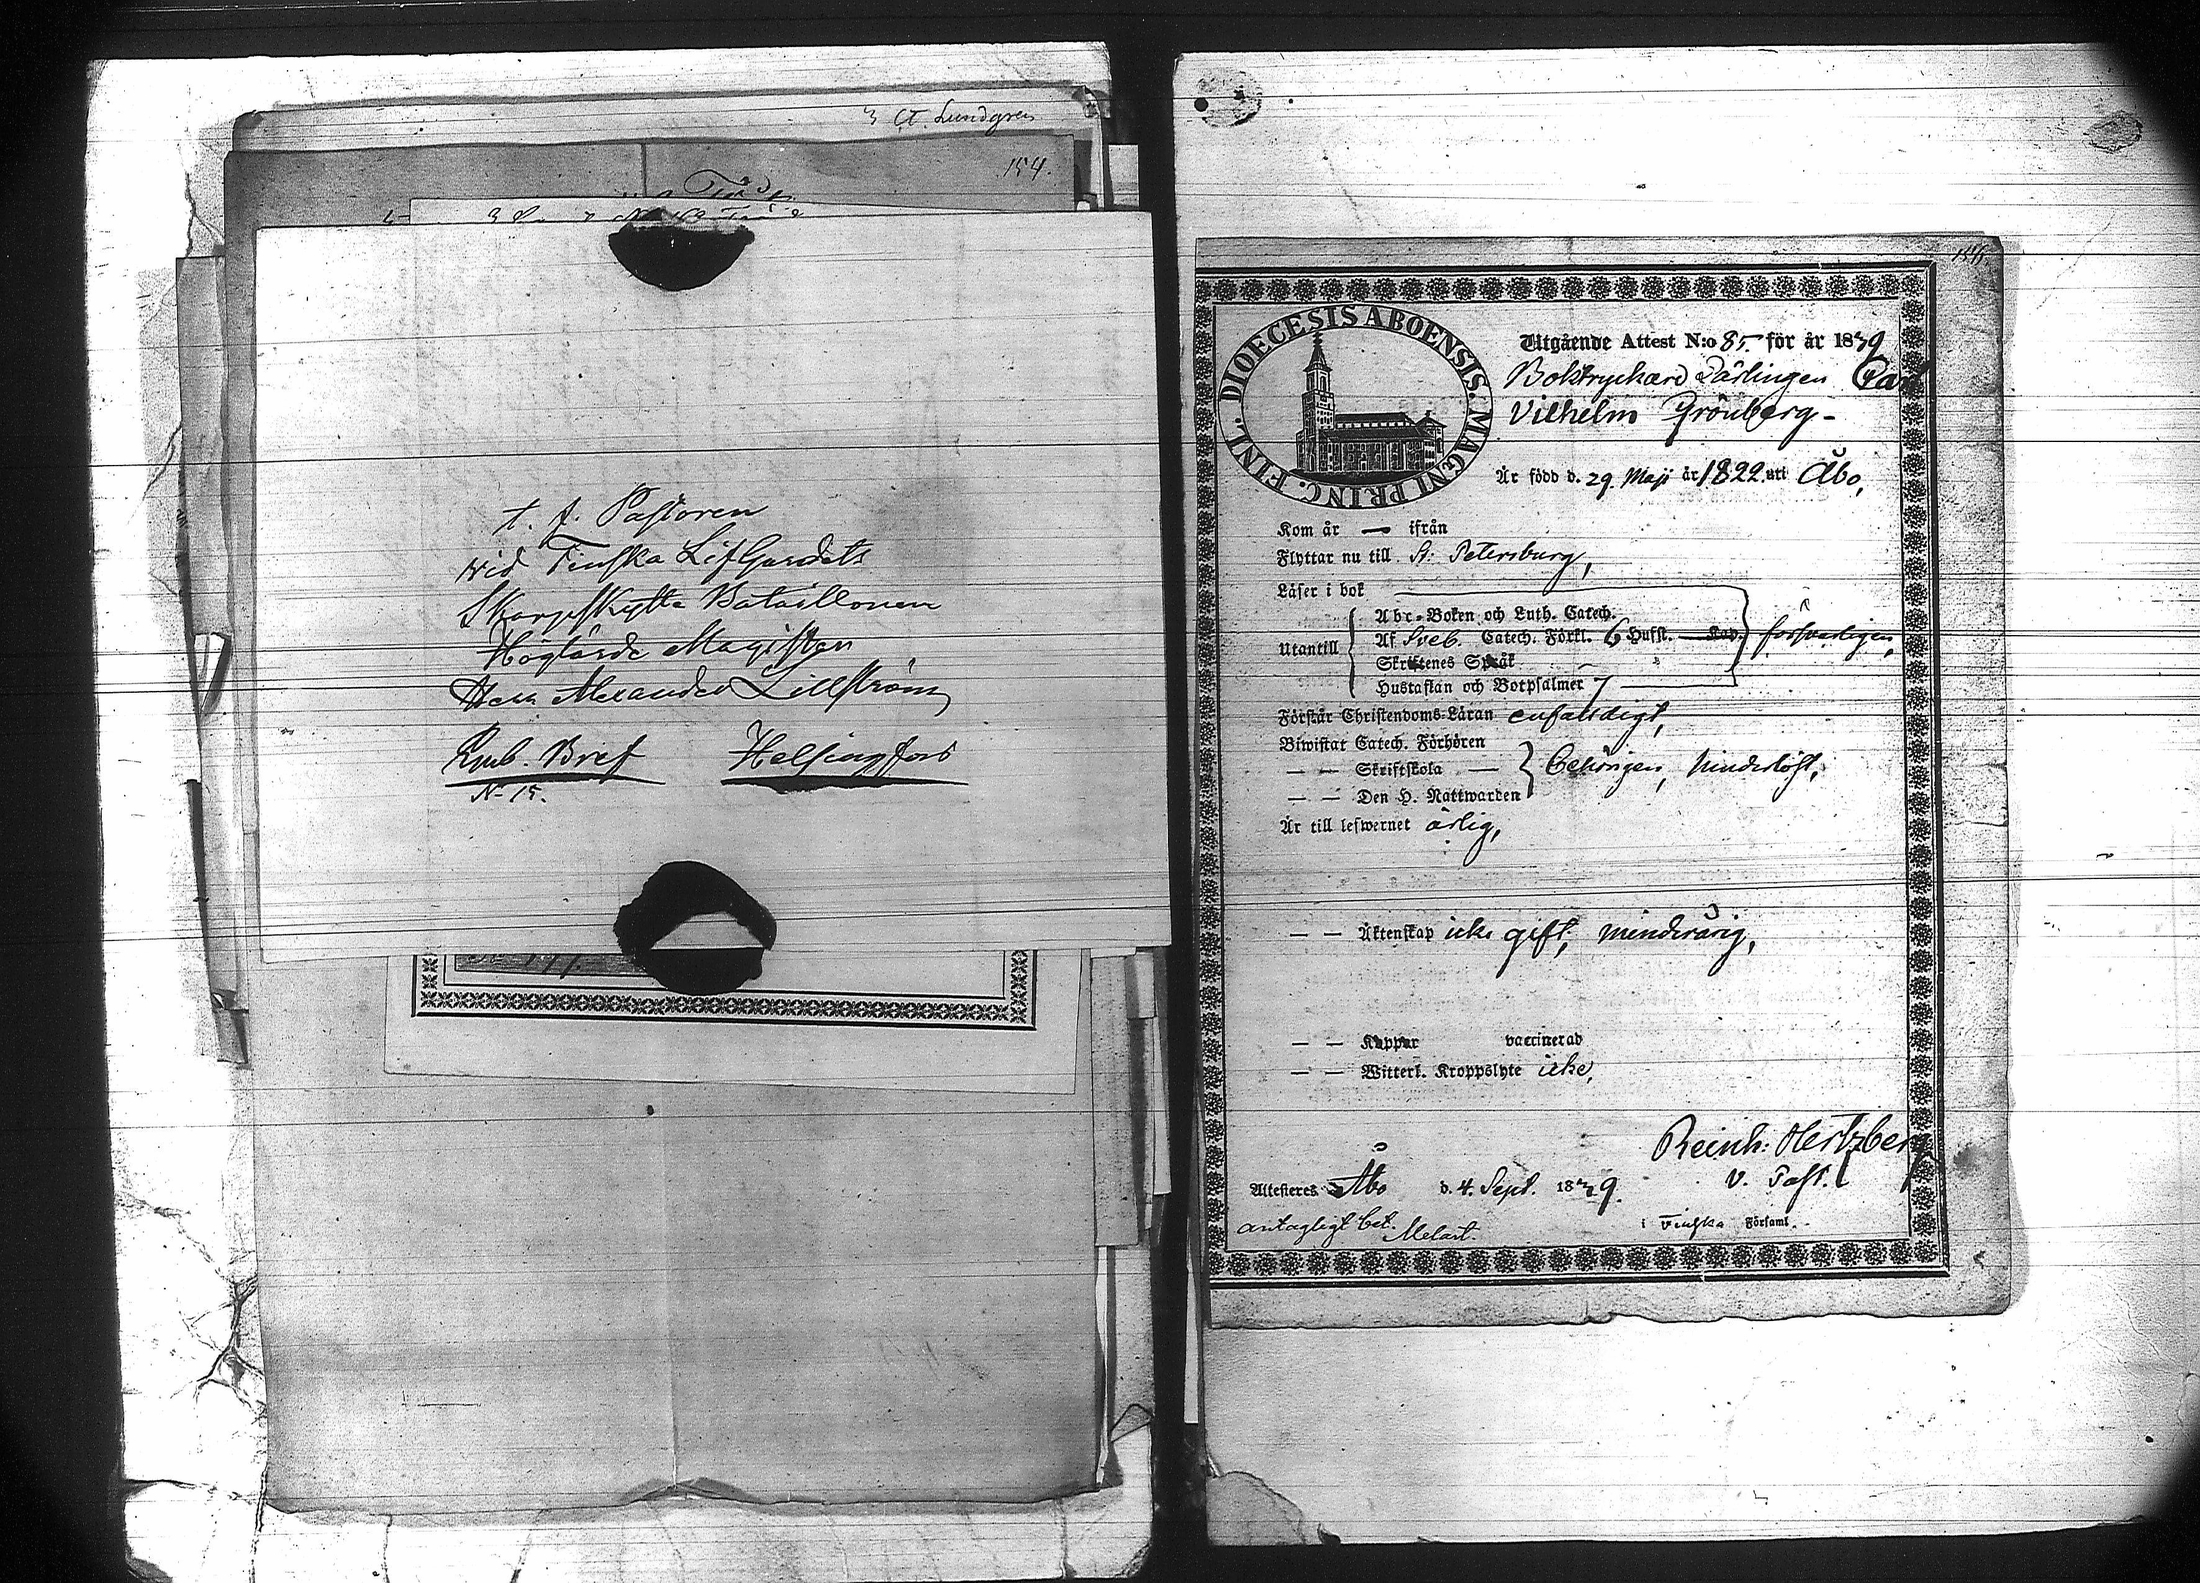 A. Lundgren
154.
t. f. Pastoren
vid Finska LifGardets
Skarpskytte Bataillonen
Höglärde Magistern
Herr Alexander Lillström
Emb. Bref Helsingfors
N 15.
DIOECESIS ABOENSIS. MAGNI PRINC. FINL.
Utgående Attest N:o 85. för år 1839
Boktryckare Lärlingen Carl
Vilhelm Grönberg-
Är född d. 29. Maji år 1822. uti Åbo,
Kom år — ifrån
Flyttar nu till St: Petersburg,
Läser i bok
Utantill
Abc-Boken och Luth. Catech.
Af Sveb. Catech. Förkl. 6 Hufst. — Kap.
försvarligen,
Skriftenes Språk
Hustaflan och Botpsalmer 7
Förstår Christendoms-Läran enfaldigt,
Biwistat Catech. Förhören
— — Skriftskola —
behörigen, hinderlöst,
— — Den H. Nattwarden
Är till lefwernet ärlig,
— — Äktenskap icke gift, minderårig,
— — Koppor vaccinerad
— — Witterl. Kroppslyte icke,
Reinh: Hertzberg
V. Past.
Attesteres Åbo d. 4. Sept. 1839.
i Finska Församl.
antagligt bet. Melart.